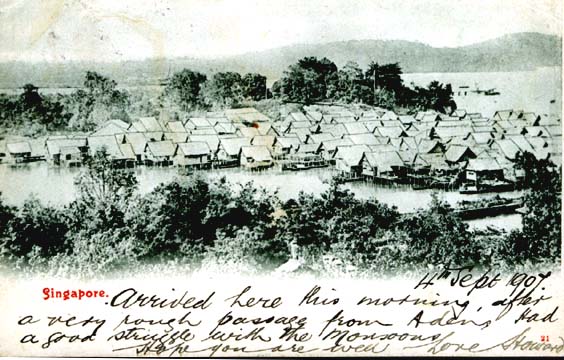 4th Sept 1907
Singapore.
Arrived here this morning, after
a very rough passage from Aden, Had
a good struggle with the Monsoons
21
Hope you are well Love Howard